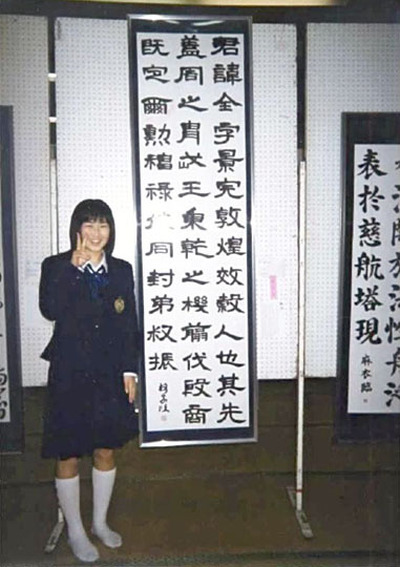 表於慈航塔現
麻衣臨
君諱全字景完敦煌效穀人也其先
蓋周之胄武王秉乾之機翦伐殷商
既定爾勳福祿攸同封弟叔振